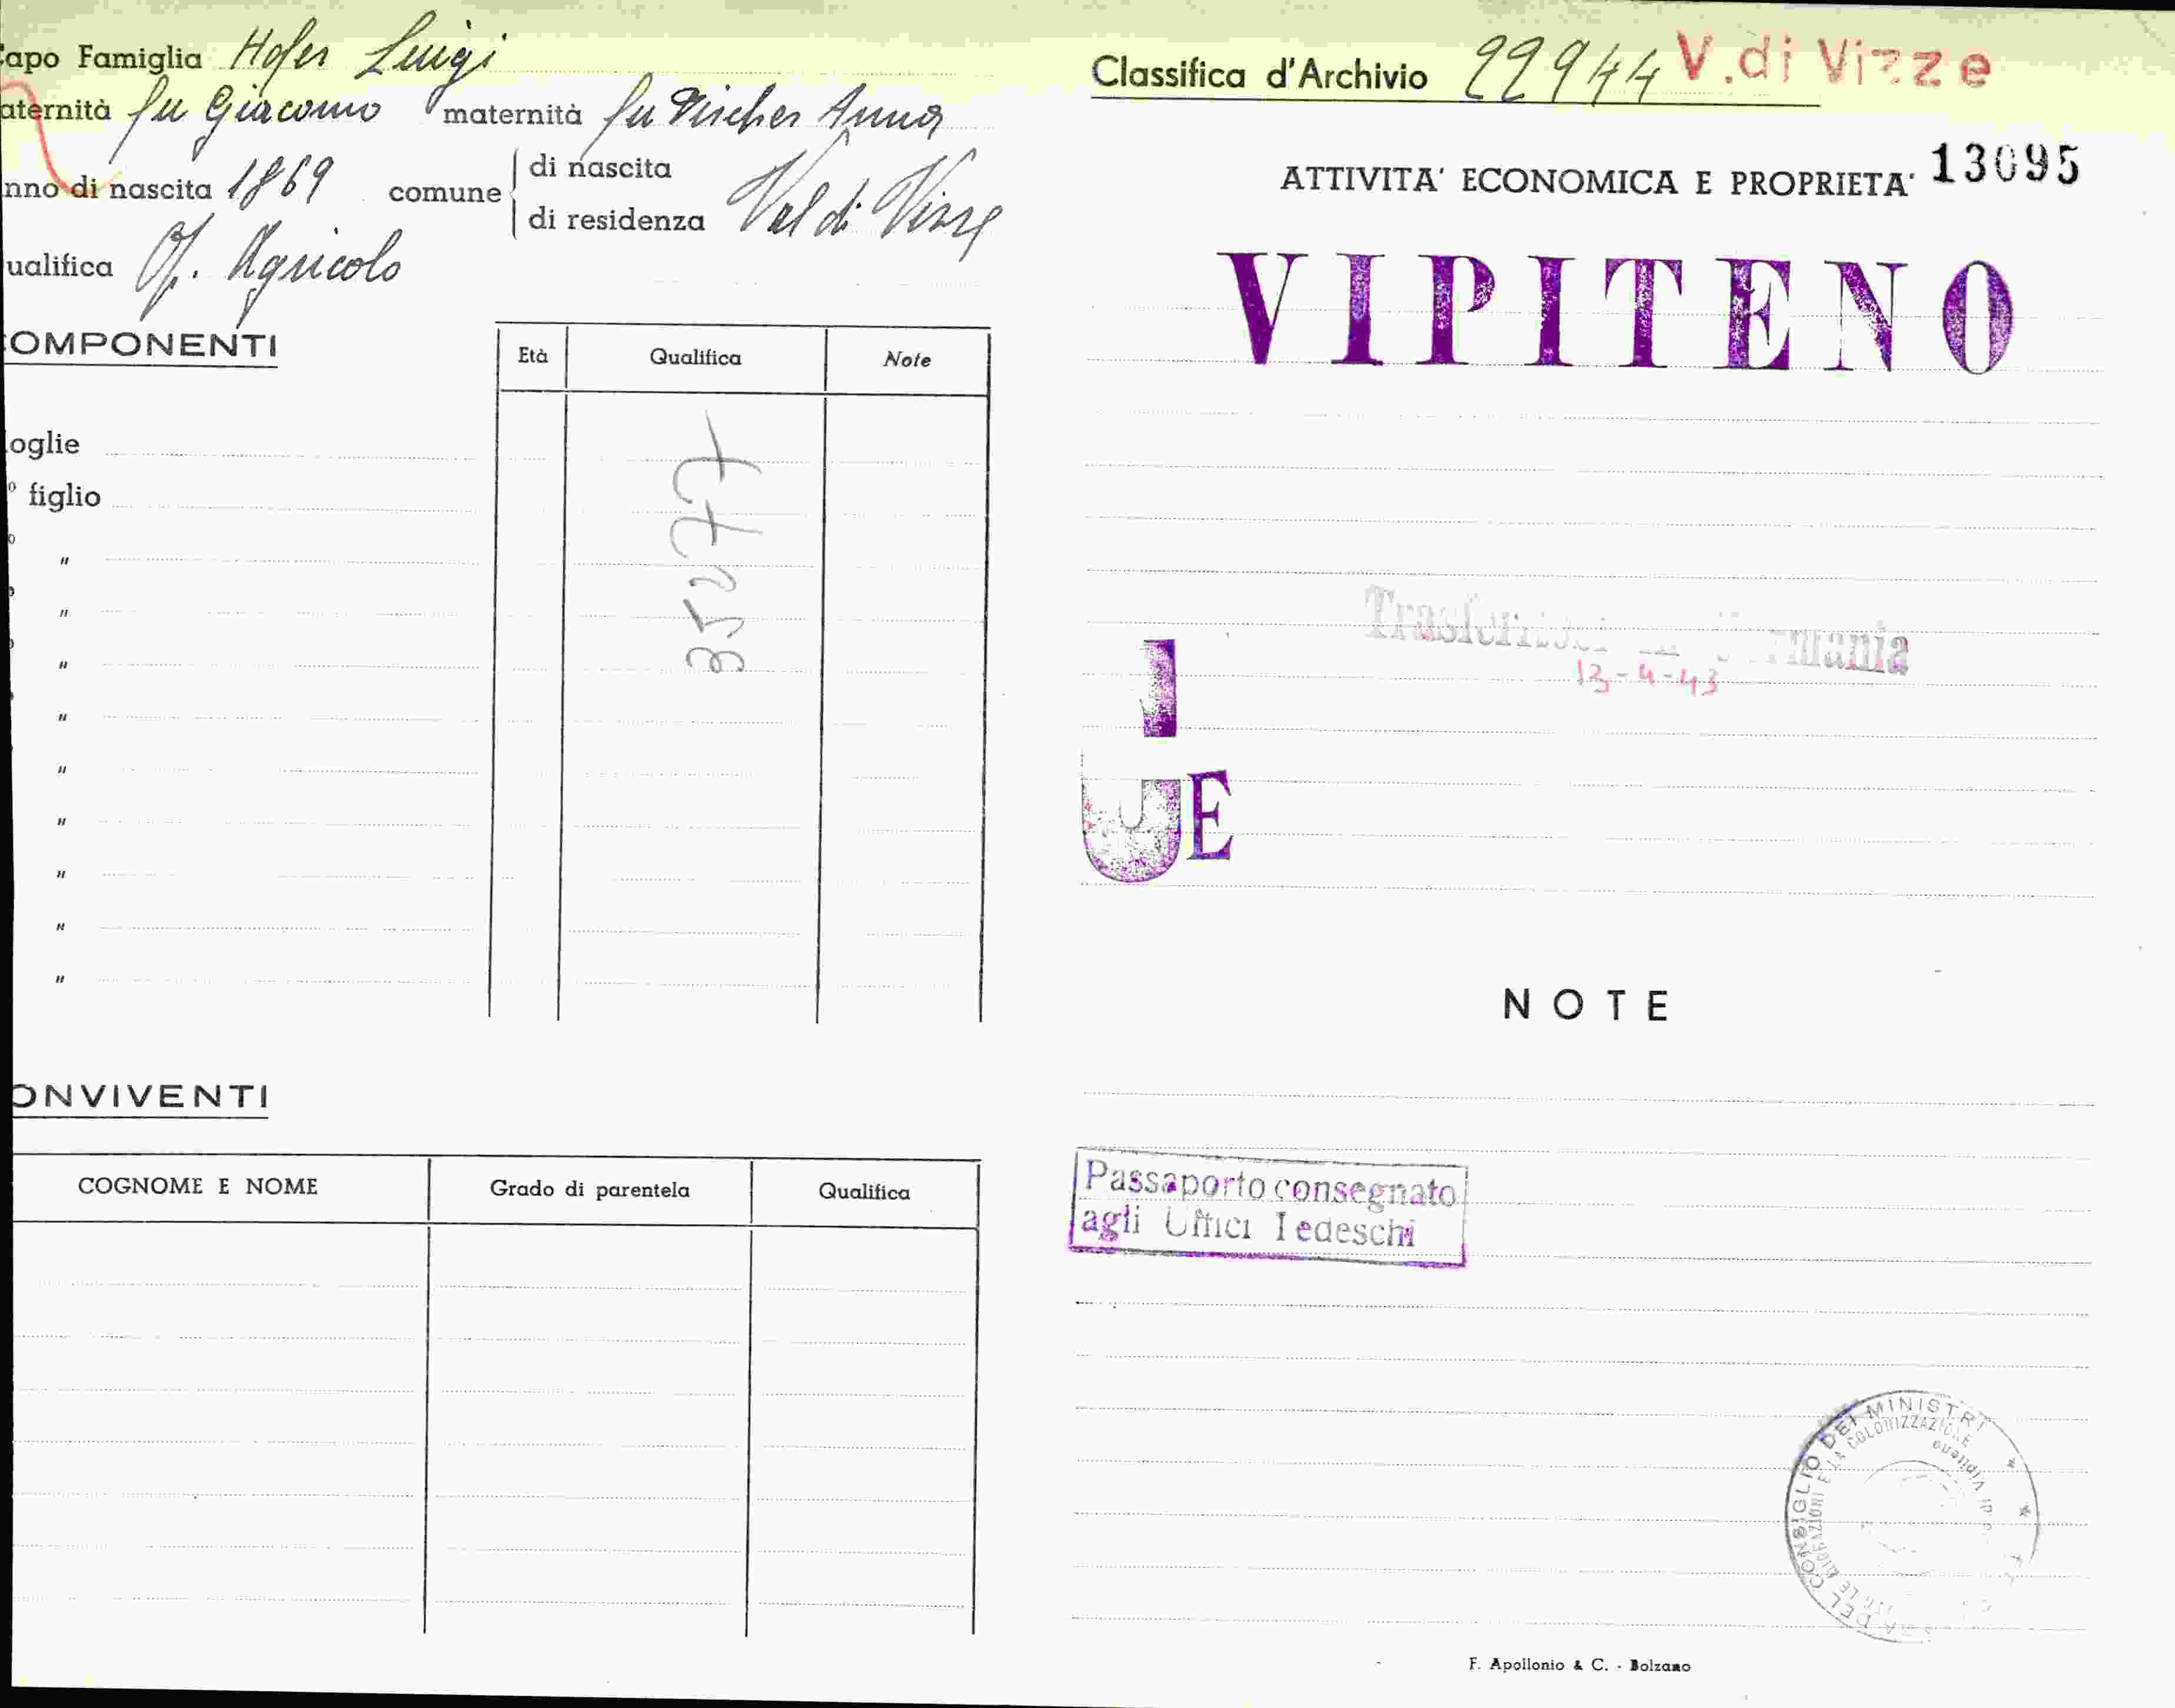 apo Famiglia Hofer Luigi
aternità fu Giacomo maternità fu Anna
nno di nascita 1869 comune di nascita
di residenza Val di Vizze
ualifica Op. Agricolo
OMPONENTI
Età Qualifica Note
oglie
° figlio
"
"
"
"
"
"
"
"
"
35277
ONVIVENTI
COGNOME E NOME Grado di parentela Qualifica
Classifica d'Archivio 22944 V.di Vizze
ATTIVITA' ECONOMICA E PROPRIETA' 13095
VIPITENO
Trasferitosi in Germania
13-4-43
I
UE
NOTE
Passaporto consegnato
agli Uffici Tedeschi
DEL CONSIGLIO DEI MINISTRI
LE MIGRAZIONI E LA COLONIZZAZIONE
di Vipiteno
F. Apollonio & C. - Bolzano